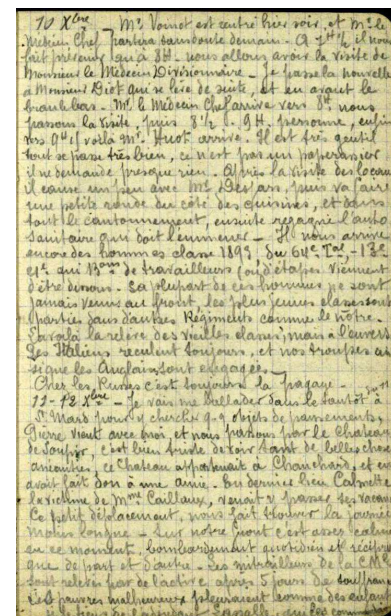 10 Xbre — Mr Voinot est rentré hier soir, et Mr le
Médecin Chef partira sans doute demain — A 7H½ il nous
fait prévenir qu'à 8H. nous allons avoir la visite de
Monsieur le Médecin Divisionnaire — Je passe la nouvelle
à Monsieur Diot qui se lève de suite, et en avant le
branle bas — Mr le Médecin Chef arrive vers 8H nous
passons la visite, puis 8½ — 9H. personne, enfin
vers 9H voilà Mr Huot arrive. Il est très gentil
tout se passe très bien, ce n'est pas un paperassier
il ne demande presque rien. Après la visite des locaux
il cause un peu avec Mr Desfars, puis va faire
une petite ronde du côté des cuisines, et dans
tout le cantonnement, ensuite regagne l'auto
sanitaire qui doit l'emmener — Il nous arrive
encore des hommes classe 1899, du 64e Tal, — 13e
21e qui de travailleurs ou d'étapes viennent
d'être dissous. La plupart de ces hommes ne sont
jamais venus au front, les plus jeunes classes sont
parties dans d'autres Régiments comme le nôtre.
Et voilà la relève des vieilles classes, mais à l'envers
Les Italiens reculent toujours, et nos troupes ainsi
que les Anglais sont engagées —
Chez les Russes c'est toujours la pagaye —
11-12 Xbre — Je vais me ballader dans le tantôt à
St Mard pour y chercher q-q objets de pansements,
Pierre vient avec moi, et nous passons par le Chateau
de Soupir, c'est bien triste de voir tant de belles choses
anéanties, ce Chateau appartenait à Chauchard, et en
avait fait don à une amie. En dernier lieu Calmette
la victime de Mme Caillaux, venait y passer ses vacances
Ce petit déplacement, nous fait trouver la journée
moins longue — Sur notre front c'est assez calme
en ce moment, bombardement quotidien et réciproque
de part et d'autre — Les mitrailleurs de la C.M.
sont relevés par de l'active, après 5 jours de souffrance
ces pauvres malheureux pleuraient comme des enfants